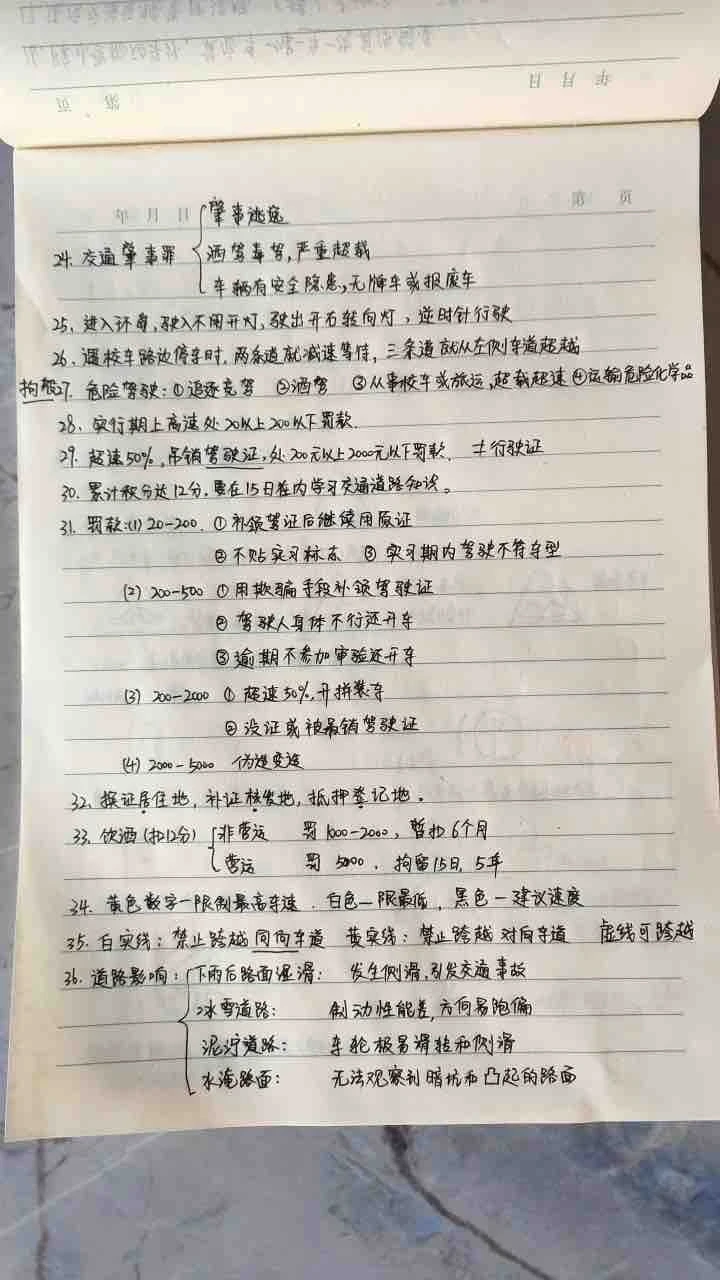 第 页
年 月 日
年 月 日
第 页
肇事逃逸
24. 交通肇事罪 酒驾毒驾,严重超载
车辆有安全隐患,无牌车或报废车
25. 进入环岛,驶入不用开灯,驶出开右转向灯,逆时针行驶
26. 遇校车路边停车时,两条道就减速等待,三条道就从左侧车道超越
拘役27. 危险驾驶:①追逐竞驾 ②酒驾 ③从事校车或旅运,超载超速 ④运输危险化学品
28. 实行期上高速处20以上200以下罚款.
29. 超速50%,吊销驾驶证,处200元以上2000元以下罚款. ≠行驶证
30. 累计积分达12分,要在15日在内学习交通道路知识。
31. 罚款:(1) 20-200. ①补领驾证后继续用原证
②不贴实习标志 ③实习期内驾驶不符车型
(2) 200-500 ①用欺骗手段补领驾驶证
②驾驶人身体不行还开车
③逾期不参加审验还开车
(3) 200-2000 ①超速50%,开拼装车
②没证或被吊销驾驶证
(4) 2000-5000 伪造变造
32. 换证居住地,补证核发地,抵押登记地。
33. 饮酒(扣12分) 非营运 罚1000-2000,暂扣6个月
营运 罚5000,拘留15日,5年
34. 黄色数字—限制最高车速.白色—限最低,黑色—建议速度
35. 白实线:禁止跨越同向车道 黄实线:禁止跨越对向车道 虚线可跨越
36. 道路影响:下雨后路面湿滑: 发生侧滑,引发交通事故
冰雪道路: 制动性能差,方向易跑偏
泥泞道路: 车轮极易滑转和侧滑
水淹路面: 无法观察到暗坑和凸起的路面